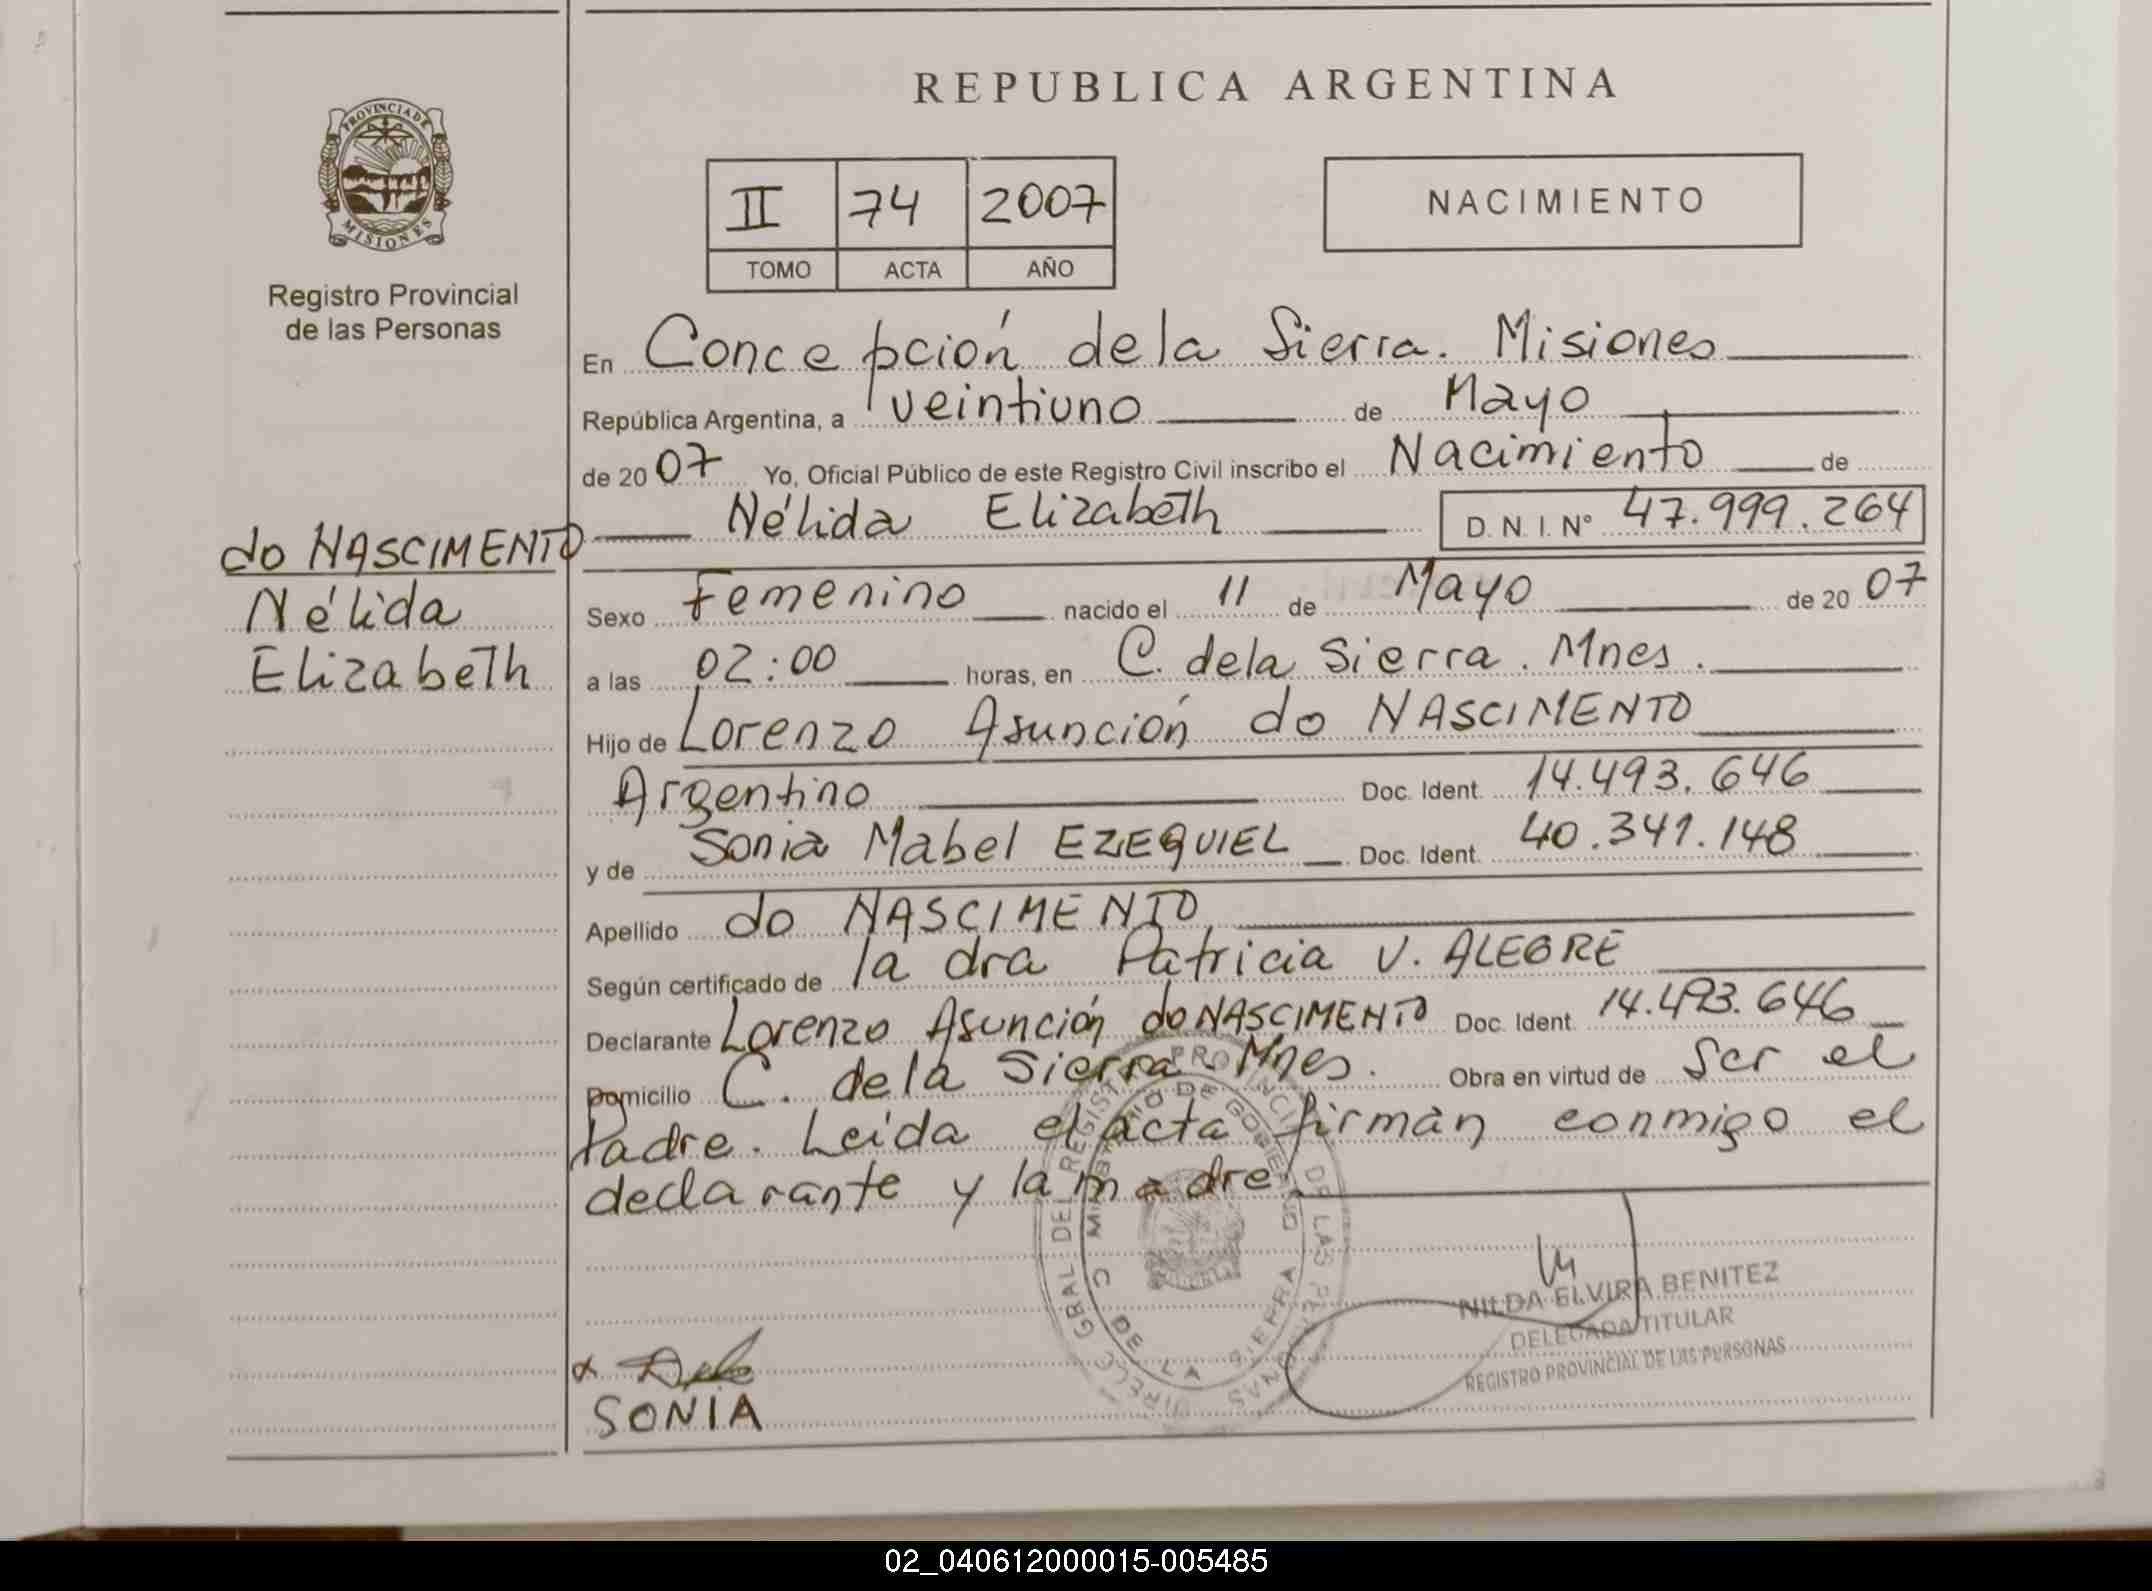 REPUBLICA ARGENTINA
PROVINCIA DE
MISIONES
Registro Provincial
de las Personas
II 74 2007
TOMO ACTA AÑO
NACIMIENTO
En Concepción de la Sierra. Misiones
República Argentina, a veintiuno de Mayo
de 2007 Yo, Oficial Público de este Registro Civil inscribo el Nacimiento de
Nélida Elizabeth D. N. I. Nº 47.999.264
do NASCIMENTO
Nélida
Elizabeth
Sexo Femenino nacido el 11 de Mayo de 2007
a las 02:00 horas, en C. de la Sierra. Mnes.
Hijo de Lorenzo Asunción do NASCIMENTO
Argentino Doc. Ident. 14.493.646
y de Sonia Mabel EZEQUIEL Doc. Ident. 40.341.148
Apellido do NASCIMENTO
Según certificado de la dra Patricia V. ALEGRE
Declarante Lorenzo Asunción do NASCIMENTO Doc. Ident. 14.493.646
Domicilio C. de la Sierra - Mnes. Obra en virtud de Ser el
Padre. Leída el acta firman conmigo el
declarante y la madre
DIRECC GRAL DEL REGISTRO PROVINCIAL DE LAS PERSONAS
MINISTERIO DE GOBIERNO
C DE LA SIERRA
NILDA ELVIRA BENITEZ
DELEGADA TITULAR
REGISTRO PROVINCIAL DE LAS PERSONAS
SONIA
02_040612000015-005485